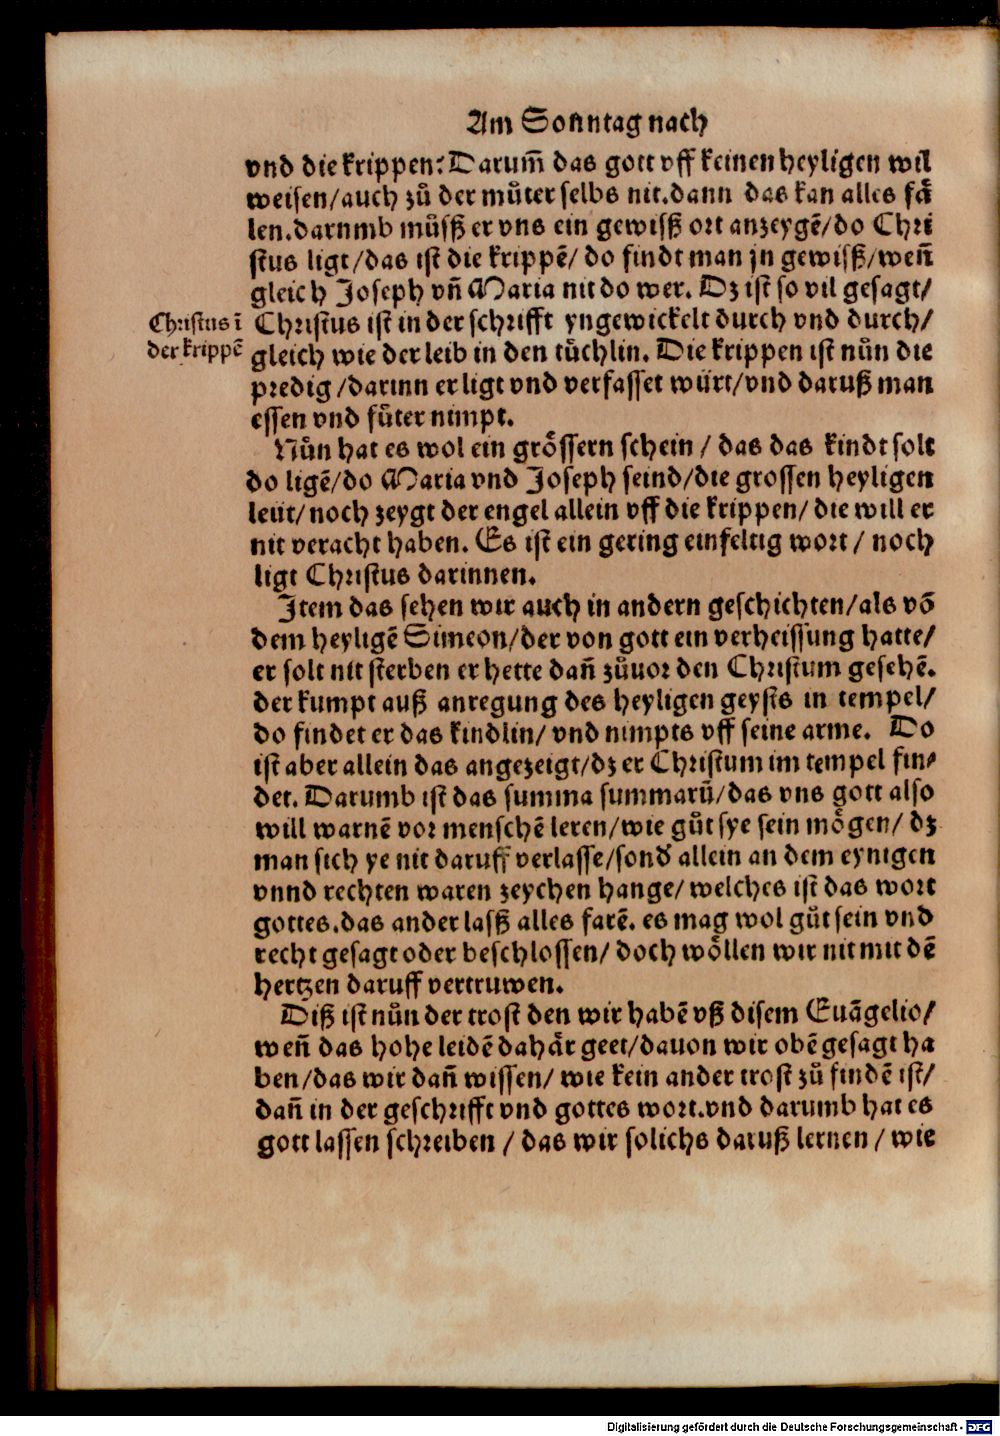 Am Sonntag nach
vnd die krippen? Darum̄ das gott vff keinen heyligen wil
weisen/auch zů der můter selbs nit.dann das kan alles få
len.darnmb můſſz er vns ein gewiſſz ort anzeygē/do Chri
stus ligt/das ist die krippē/ do findt man jn gewiſſz/wen̄
gleich Joseph vn̄ Maria nit do wer. Dz ist so vil gesagt/
Christus ī
der krippē
Christus ist in der schrifft yngewickelt durch vnd durch/
gleich wie der leib in den tůchlin. Die krippen ist nůn die
predig/darinn er ligt vnd verfasset würt/vnd daruß man
essen vnd fůter nimpt.
Nůn hat es wol ein grőssern schein / das das kindt solt
do ligē/do Maria vnd Joseph seind/die grossen heyligen
leüt/noch zeygt der engel allein vff die krippen/ die will er
nit veracht haben. Es ist ein gering einfeltig wort / noch
ligt Christus darinnen.
Item das sehen wir auch in andern geschichten/als vō
dem heyligē Simeon/der von gott ein verheissung hatte/
er solt nit sterben er hette dan̄ zůuor den Christum gesehē.
der kumpt auß anregung des heyligen geysts in tempel/
do findet er das kindlin/ vnd nimpts vff seine arme. Do
ist aber allein das angezeigt/dz er Christum im tempel fin⸗
det. Darumb ist das summa summarū/das vns gott also
will warnē vor menschē leren/wie gůt sye sein mögen/ dz
man sich ye nit daruff verlasse/sond' allein an dem eynigen
vnnd rechten waren zeychen hange/ welches ist das wort
gottes.das ander laſſz alles farē. es mag wol gůt sein vnd
recht gesagt oder beschlossen/ doch wőllen wir nit mit dē
hertzen daruff vertruwen.
Diß ist nůn der trost den wir habē vß disem Euāgelio/
wen̄ das hohe leidē dahår geet/dauon wir obē gesagt ha
ben/das wir dan̄ wissen/ wie kein ander trost zů findē ist/
dan̄ in der geschrifft vnd gottes wort.vnd darumb hat es
gott lassen schreiben / das wir solichs daruß lernen / wie
Digitalisierung gefördert durch die Deutsche Forschungsgemeinschaft - DFG